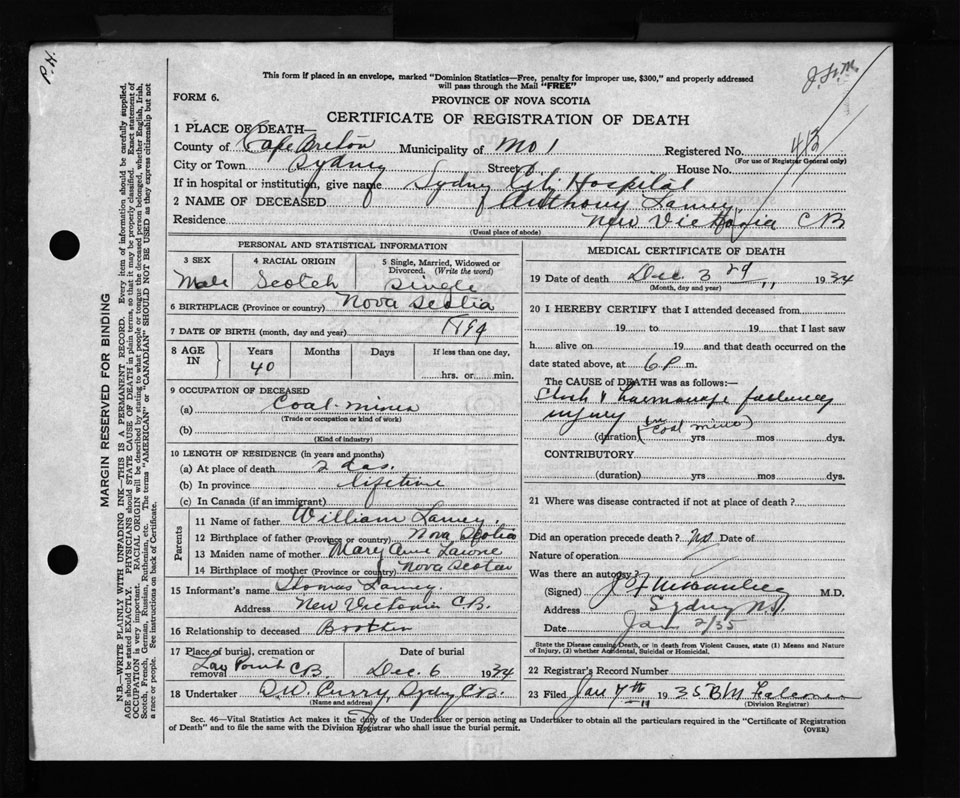 P.H.
J.F.M.
This form if placed in an envelope, marked "Dominion Statistics—Free, penalty for improper use, $300," and properly addressed
will pass through the Mail "FREE"
FORM 6.
PROVINCE OF NOVA SCOTIA
CERTIFICATE OF REGISTRATION OF DEATH
1 PLACE OF DEATH—
County of Cape Breton Municipality of No 1 Registered No. 413
(For use of Registrar General only)
City or Town Sydney Street House No.
If in hospital or institution, give name Sydney City Hospital
2 NAME OF DECEASED Anthony Lamey
Residence New Victoria CB
(Usual place of abode)
PERSONAL AND STATISTICAL INFORMATION
3 SEX Male
4 RACIAL ORIGIN Scotch
5 Single, Married, Widowed or Divorced. (Write the word) Single
6 BIRTHPLACE (Province or country) Nova Scotia
7 DATE OF BIRTH (month, day and year) 1894
8 AGE IN Years 40 Months Days If less than one day, hrs. or min.
9 OCCUPATION OF DECEASED
(a) Coal-miner
(Trade or occupation or kind of work)
(b)
(Kind of industry)
10 LENGTH OF RESIDENCE (in years and months)
(a) At place of death 2 das.
(b) In province lifetime
(c) In Canada (if an immigrant)
Parents
11 Name of father William Lamey
12 Birthplace of father (Province or country) Nova Scotia
13 Maiden name of mother Mary Ann
14 Birthplace of mother (Province or country) Nova Scotia
15 Informant's name Thomas Lamey
Address New Victoria C.B.
16 Relationship to deceased Brother
17 Place of burial, cremation or removal CB
Date of burial Dec 6 1934
18 Undertaker D.W. Curry, Sydney C.B.
(Name and address)
MEDICAL CERTIFICATE OF DEATH
19 Date of death Dec 3rd 1934
(Month, day and year)
20 I HEREBY CERTIFY that I attended deceased from
19 to 19 that I last saw
h alive on 19 and that death occurred on the
date stated above, at 6 P m.
The CAUSE of DEATH was as follows:—
Shock & haemorrhage following
injury (in coal mine)
(duration) yrs mos dys.
CONTRIBUTORY
(duration) yrs mos dys.
21 Where was disease contracted if not at place of death?
Did an operation precede death? No Date of
Nature of operation
Was there an autopsy?
(Signed) M.D.
Address Sydney NS
Date Jan 2/35
State the Disease causing Death, or in death from Violent Causes, state (1) Means and Nature
of Injury, (2) whether Accidental, Suicidal or Homicidal.
22 Registrar's Record Number
23 Filed Jan 7th 1935 B M
(Division Registrar)
Sec. 46—Vital Statistics Act makes it the duty of the Undertaker or person acting as Undertaker to obtain all the particulars required in the "Certificate of Registration
of Death" and to file the same with the Division Registrar who shall issue the burial permit.
(OVER)
MARGIN RESERVED FOR BINDING
N.B.—WRITE PLAINLY WITH UNFADING INK—THIS IS A PERMANENT RECORD. Every item of information should be carefully supplied.
AGE should be stated EXACTLY. PHYSICIANS should STATE CAUSE OF DEATH in plain terms, so that it may be properly classified. Exact statement of
OCCUPATION is very important. RACIAL ORIGIN will be described by stating to what people or tongue the deceased person belonged, whether English, Irish,
Scotch, French, German, Russian, Ruthenian, etc. The terms "AMERICAN" or "CANADIAN" SHOULD NOT BE USED as they express citizenship but not
a race or people. See instructions on back of Certificate.